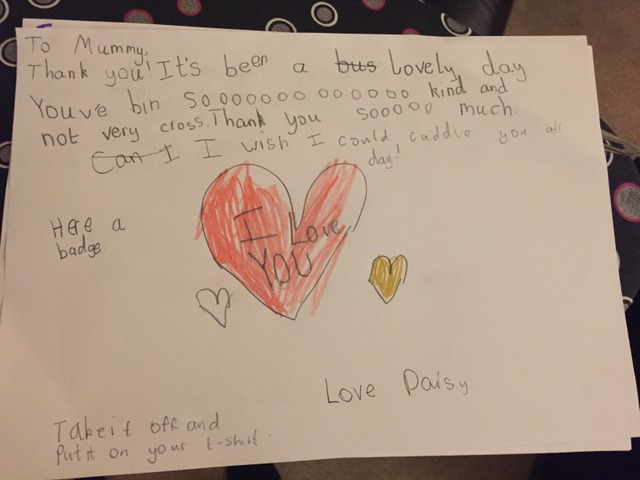 To Mummy,
Thank you! It's been a bus lovely day
Youve bin Soooooooooooooo kind and
not very cross. Thank you sooooo much.
Can I I wish I could cuddle you all
day!
I Love
YOU
Here a
badge
Love Daisy
Take it off and
Put it on your t-shirt.